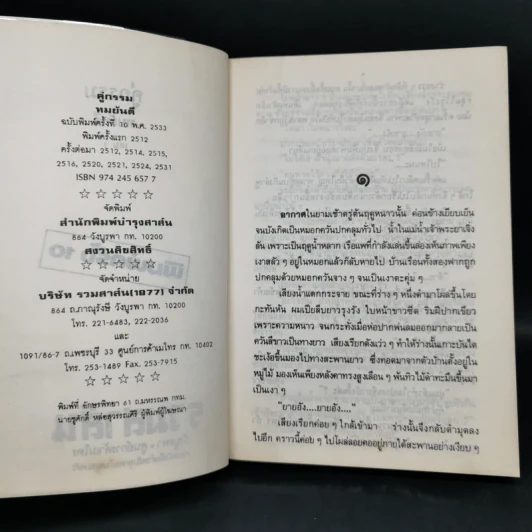 คู่กรรม
ทมยันตี
ฉบับพิมพ์ครั้งที่ 10 พ.ศ. 2533
พิมพ์ครั้งแรก 2512
ครั้งต่อมา 2512, 2514, 2515,
2516, 2520, 2521, 2524, 2531
ISBN 974 245 657 7
☆ ☆ ☆ ☆ ☆
จัดพิมพ์
สำนักพิมพ์บำรุงสาส์น
864 วังบูรพา กท. 10200
สงวนลิขสิทธิ์
☆ ☆ ☆ ☆ ☆
จัดจำหน่าย
บริษัท รวมสาส์น(1977) จำกัด
864 ถ.ภาณุรังษี วังบูรพา กท.
โทร. 221-6483, 222-2036
และ
1091/86-7 ถ.เพชรบุรี 33 ศูนย์การค้าเมโทร กท. 10402
โทร. 253-1489 Fax. 253-7915
☆ ☆ ☆ ☆ ☆
พิมพ์ที่ อักษรพิทยา 61 ถ.มหรรณพ กทม.
นายชูศักดิ์ หล่อสุวรรณศิริ ผู้พิมพ์ผู้โฆษณา
๑
อากาศในยามเช้าตรู่ต้นฤดูหนาวนั้น ค่อนข้างเยียบเย็น
จนบังเกิดเป็นหมอกควันปกคลุมทั่วไป น้ำในแม่น้ำเจ้าพระยาเจิ่ง
ล้น เพราะเป็นฤดูน้ำหลาก เรือแพที่กำลังแล่นขึ้นล่องเห็นภาพเพียง
เงาสลัว ๆ อยู่ในหมอกแล้วก็ลับหายไป บ้านเรือนทั้งสองฟากถูก
ปกคลุมด้วยหมอกควันจาง ๆ จนเป็นเงาตะคุ่ม ๆ
เสียงน้ำแตกกระจาย ขณะที่ร่าง ๆ หนึ่งดำมาโผล่ขึ้นโดย
กะทันหัน ผมเปียสีบยาวรุงรัง ใบหน้าขาวซีด ริมฝีปากเขียว
เพราะความหนาว จนกระทั่งเมื่อห่อปากพ่นลมออกมากลายเป็น
ควันสีขาวเป็นทางยาว เสียงเรียกดังแว่ว ๆ ทำให้ร่างนั้นเกาะบันได
ชะเง้อขึ้นมองไปทางสะพานยาว ซึ่งทอดมาจากตัวบ้านตั้งอยู่ใน
หมู่ไม้ มองเห็นเพียงหลังคาทรงสูงเลือน ๆ พ้นทิวไม้ดำทะมึนขึ้นมา
เป็นเงา ๆ
"ยายอัง....ยายอัง...."
เสียงเรียกค่อย ๆ ใกล้เข้ามา ร่างนั้นจึงกลับดำมุดลง
ไปอีก คราวนี้ค่อย ๆ ไปโผล่ลอยคออยู่ภายใต้สะพานอย่างเงียบ ๆ